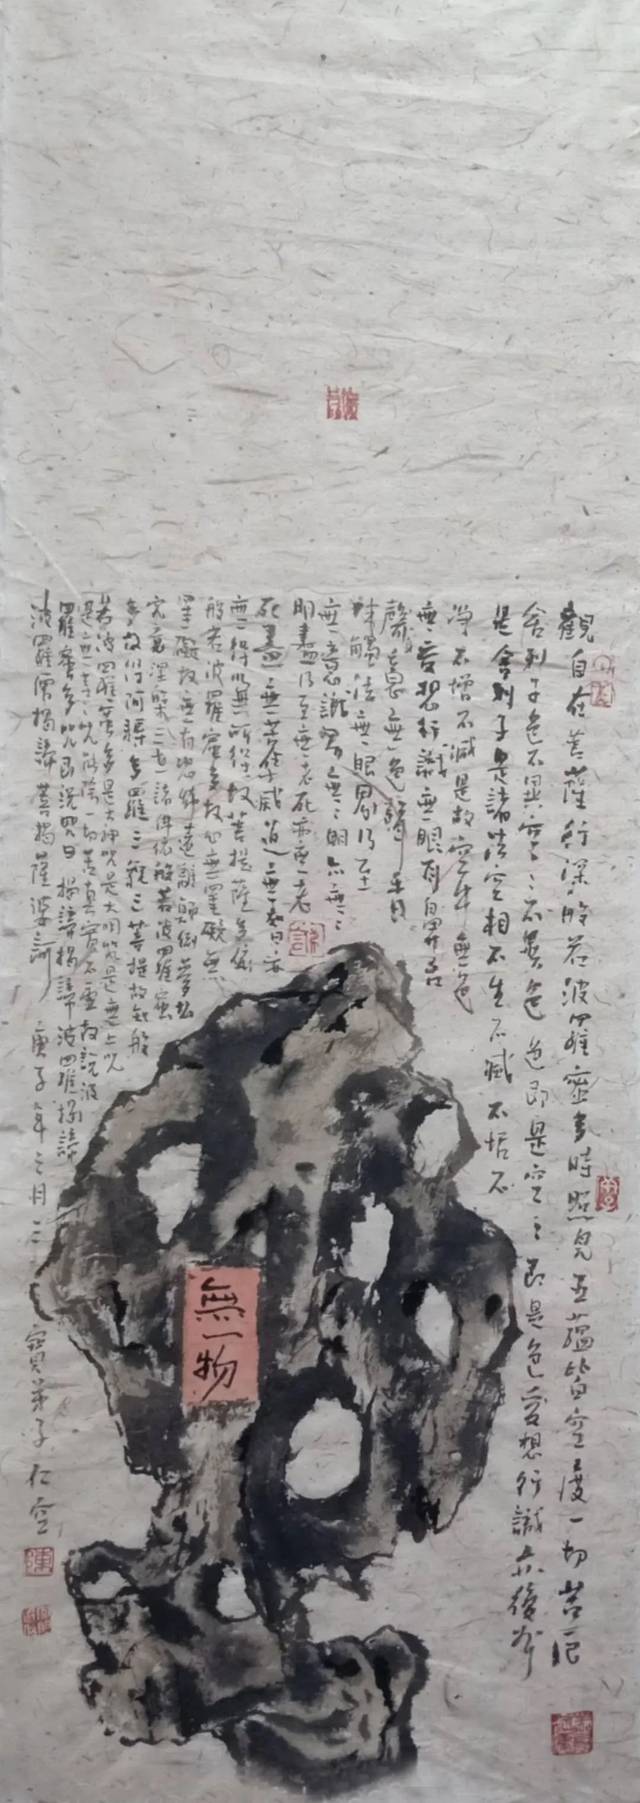 觀自在菩薩行深般若波羅蜜多時照見五蘊皆空度一切苦厄
舍利子色不異空〻不異色色即是空〻即是色受想行識亦復如
是舍利子是諸法空相不生不滅不垢不
淨不增不減是故空中無色
無受想行識無眼耳鼻舌
意無色聲香
味觸法無眼界乃至
無意識界無〻明亦無〻
明盡乃至無老死亦無老
死盡無苦集滅道無智亦
無得以無所得故菩提薩埵依
般若波羅蜜多故心無罣礙無
罣礙故無有恐怖遠離顛倒夢想
究竟涅槃三世諸佛依般若波羅蜜
多故得阿耨多羅三藐三菩提故知般
若波羅蜜多是大神咒是大明咒是無上咒
是無等〻咒能除一切苦真實不虛故說波
羅蜜多咒即說咒曰揭諦揭諦波羅揭諦
波羅僧揭諦菩揭薩婆訶 庚子年三月二 寶弟子仁空
無一物